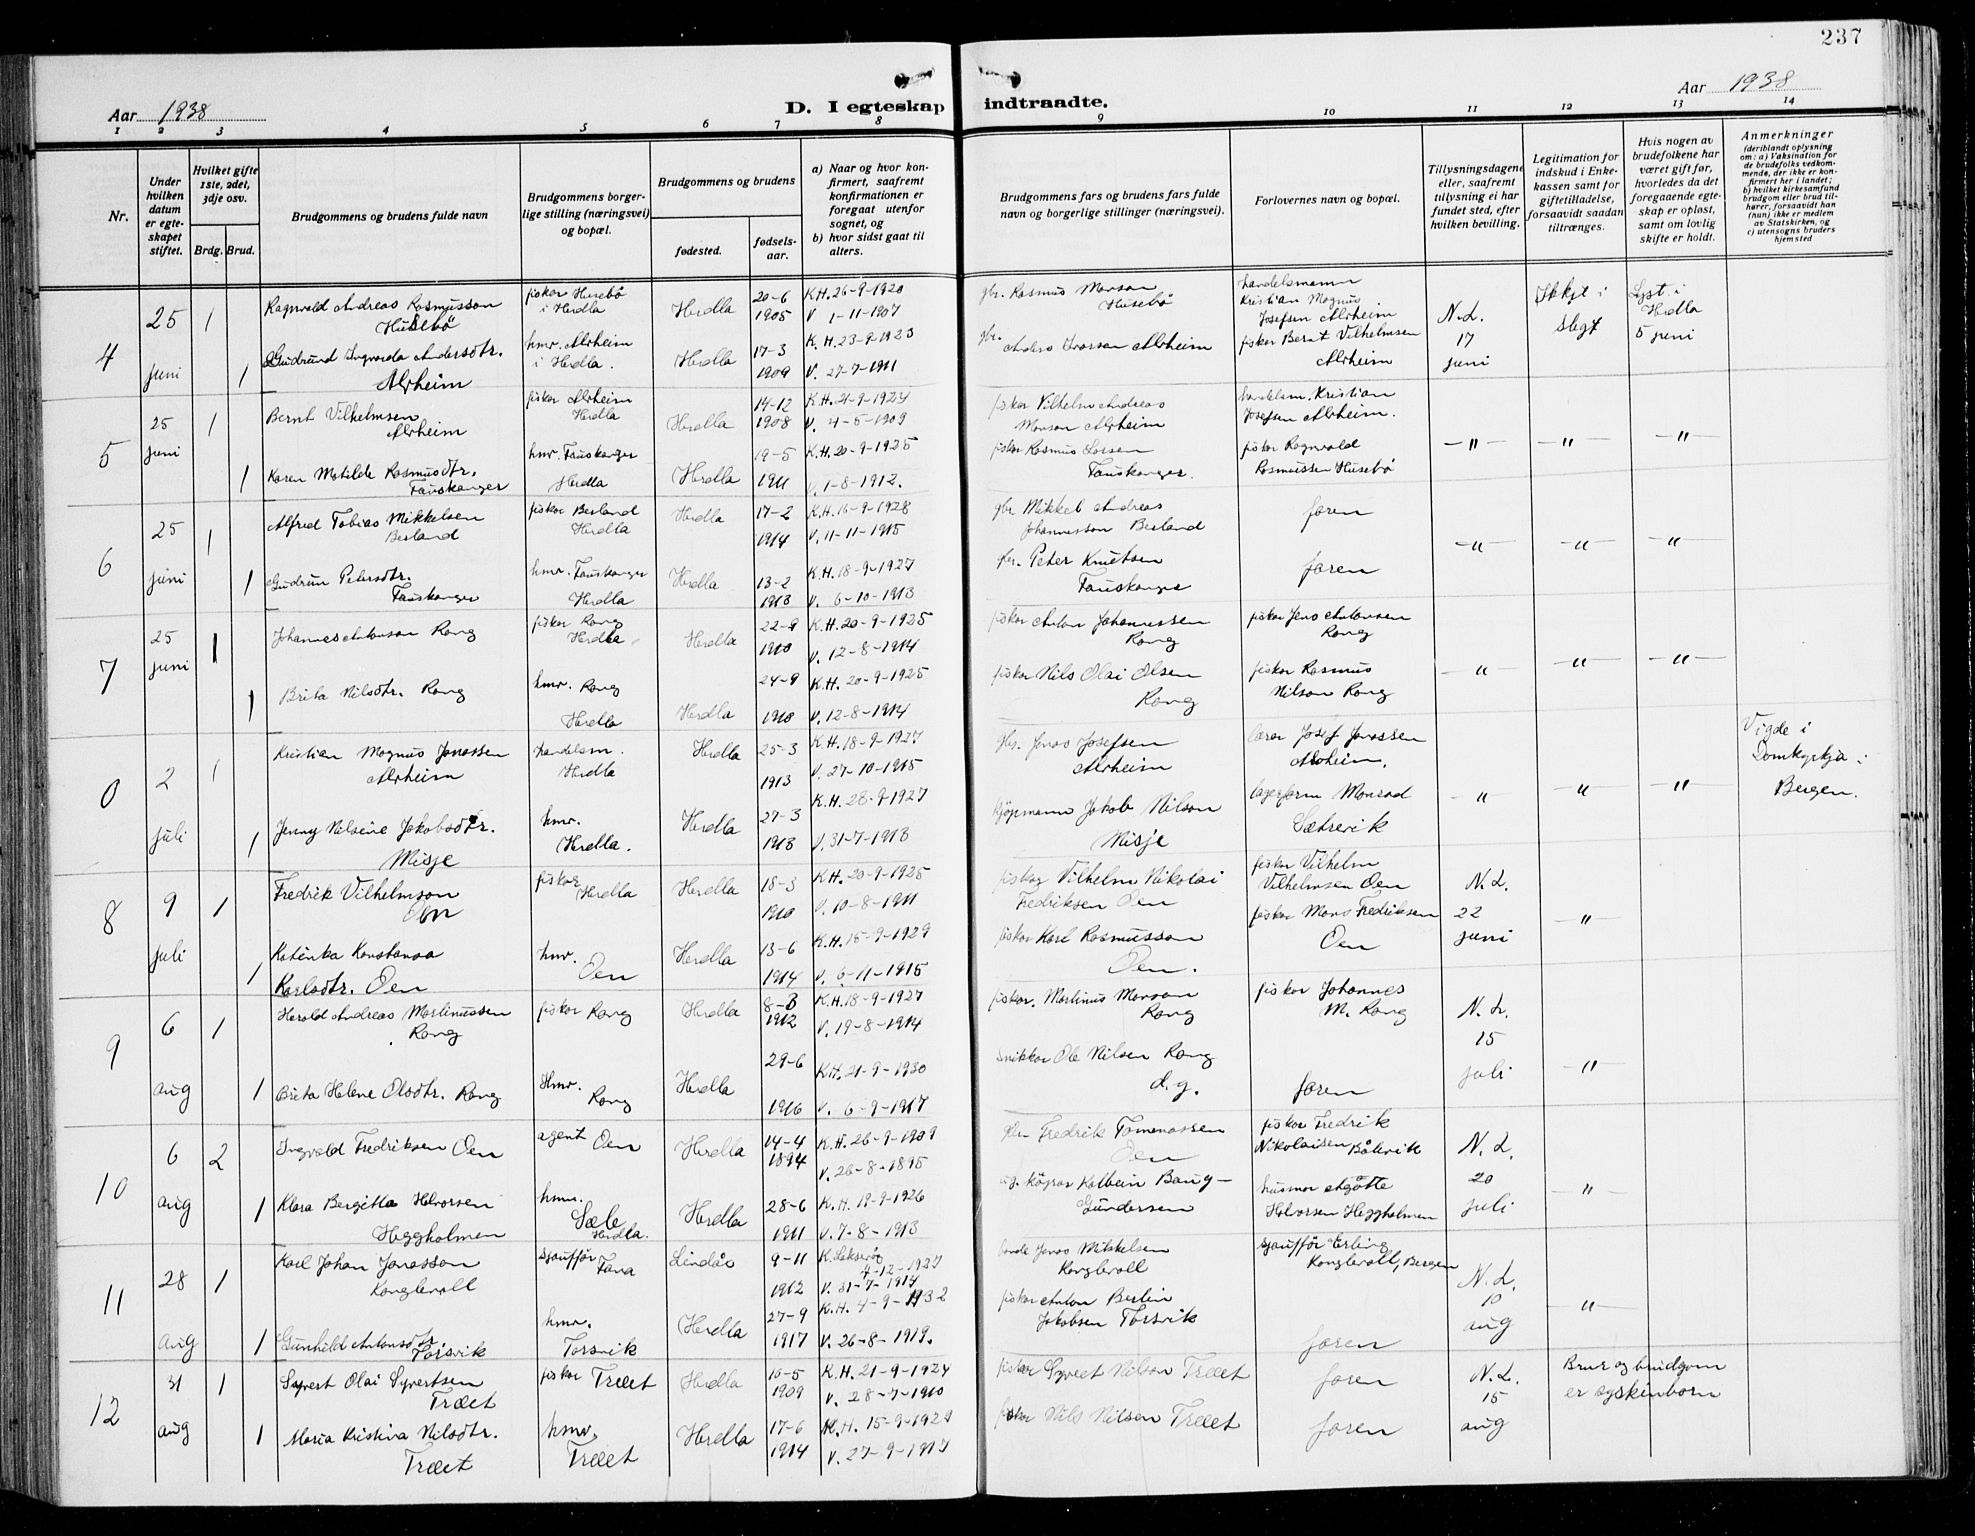 237
Aar 1938
D. I egteskap indtraadte.
Aar 1938
1 2 3 4 5 6 7 8 9 10 11 12 13 14
Nr.
Under hvilken datum er egteskapet stiftet.
Hvilket gifte 1ste, 2det, 3dje osv.
Brdg. Brud.
Brudgommens og brudens fulde navn
Brudgommens borgerlige stilling (næringsvei) og bopæl.
Brudgommens og brudens
fødested.
fødselsaar.
a) Naar og hvor konfirmert, saafremt konfirmationen er foregaat utenfor sognet, og
b) hvor sidst gaat til alters.
Brudgommens fars og brudens fars fulde navn og borgerlige stillinger (næringsvei).
Forlovernes navn og bopæl.
Tillysningsdagene eller, saafremt tillysning ei har fundet sted, efter hvilken bevilling.
Legitimation for indskud i Enkekassen samt for giftetilladelse, forsaavidt saadan tiltrænges.
Hvis nogen av brudefolkene har været gift før, hvorledes da det foregaaende egteskap er opløst, samt om lovlig skifte er holdt.
Anmerkninger
(deriblandt oplysning om: a) Vaksination for de brudefolks vedkommende, der ikke er konfirmert her i landet;
b) hvilket kirkesamfund brudgom eller brud tilhører, forsaavidt han (hun) ikke er medlem av Statskirken, og
c) utensogns bruders hjemsted
4 25 juni 1 Ragnvald Andreas Rasmussen Husebö fiskar Husebö i Herdla Herdla 20-6 1905 K.H. 26-9-1920 V. 1-11-1907 gbr. Rasmus Monsen Husebö handelsmann Kristian Magnus Josefsen Alvheim N.L. 17 juni
1 Gudrund Ingvarda Andersdtr. Alvheim hmr. Alvheim i Herdla. Herdla 17-3 1909 K.H. 23-9-1923 V. 27-7-1911 gbr. Anders Larsen Alvheim fiskar Bernt Vilhelmsen Alvheim
Lyst i Herdla 5 juni
5 25 juni 1 Bernt Vilhelmsen Alvheim fiskar Alvheim Herdla Herdla 14-12 1908 K.H. 21-9-1924 V. 4-5-1909 fiskar Vilhelm Andreas Monsen Alvheim handelsm. Kristian Josefsen Alvheim. -"- -"- -"-
1 Karen Matilde Rasmusdtr. Fauskanger hmr. Fauskanger Herdla Herdla 19-5 1911 K.H. 20-9-1925 V. 1-8-1912. fiskar Rasmus Larsen Fauskanger. fiskar Ragnvald Rasmussen Husebö
6 25 juni 1 Alfred Tobias Mikkelsen Besland fiskar Besland Herdla Herdla 17-2 1914 K.H. 16-9-1928 V. 11-11-1915 gbr Mikkel Andreas Johannesson Besland faren -"- -"- -"-
1 Gudrun Petersdtr. Fauskanger hmr. Fauskanger Herdla Herdla 13-2 1913 K.H. 18-9-1927 V. 6-10-1913 gbr. Peter Knutsen Fauskanger faren
7 25 juni 1 Johannes Antonson Rong fiskar Rong Herdla Herdla 22-9 1910 K.H. 20-9-1925 V. 12-8-1914 fiskar Anton Johannessen Rong fiskar Jens Antonsen Rong -"- -"- -"-
1 Brita Nilsdtr. Rong hmr. Rong Herdla Herdla 24-9 1910 K.H. 20-9-1925 V. 12-8-1914 fiskar Nils Olai Olsen Rong fiskar Rasmus Nilson Rong
0 2 juli 1 Kristian Magnus Jonassen Alvheim handelsm. Herdla Herdla 25-3 1913 K.H. 18-9-1927 V. 27-10-1915 gbr. Jonas Josefsen Alvheim lærar Josef Jonassen Alvheim. -"- -"- -"- Vigde i Domkyrkja i Bergen.
1 Jenny Nilsine Jakobsdtr. Misje hmr. Herdla. Herdla 27-3 1913 K.H. 28-9-1927 V. 31-7-1913 kjöpmann Jakob Nilson Misje lagerform Monrad Sætrevik
8 9 juli 1 Fredrik Vilhelmson Oen fiskar Herdla Herdla 18-3 1910 K.H. 20-9-1925 V. 10-8-1911 fiskar Vilhelm Nikolai Fedriksen Oen fiskar Vilhelm Vilhelmsen Oen N.L. 22 juni -"-
1 Katinka Konstansa Karlsdtr. Oen hmr. Oen Herdla 13-6 1914 K.H. 15-9-1929 V. 6-11-1915 fiskar Karl Rasmusson Oen. fiskar Mons Fredriksen Oen
9 6 aug 1 Harald Andreas Martinussen Rong fiskar Rong Herdla 8-3 1912 K.H. 18-9-1927 V. 19-8-1914 fiskar. Martinus Monson Rong fiskar Johannes M. Rong N.L. 15 juli -"-
1 Brita Helene Olsdtr. Rong Hmr. Rong Herdla 29-6 1916 K.H. 21-9-1930 V. 6-9-1917 snikkar Ole Nilsen Rong d.y. faren
10 6 aug 2 Ingvald Fredriksen Oen agent Oen Herdla 14-4 1894 K.H. 26-9-1909 V. 26-8-1895 gbr. Fredrik Tomenassen Oen fiskar Fredrik Nikolaisen Båtevik N.L. 20 juli -"-
1 Klara Bergitta Halvorsen Heggholmen hmr. Sæle Herdla. Herdla 28-6 1911 K.H. 19-9-1926 V. 7-8-1913 Kolbein Baug-Gundersen husmor Agåtte Halvorsen Heggholmen
11 28 aug 1 Karl Johan Jonasson Konglevoll sjauffør Fana Lindås 9-11 1912 4-12-1927 V. 31-7-1914 Jonas Mikkelsen Konglevoll sjauffør Erling Konglevoll, Bergen N.L. 10 aug -"-
1 Gunhild Antonsdtr. Torsvik hmr. Torsvik Herdla 27-9 1917 K.H. 4-9-1932 V. 26-8-1919. fiskar Anton Berlin Jakobsen Torsvik faren
12 31 aug 1 Syvert Olai Syvertsen Træet fiskar Træet Herdla 10-5 1909 K.H. 21-9-1924 V. 28-7-1910 fiskar Syvert Nilson Træet faren N.L. 15 aug Brur og brudgom er syskinborn
1 Maria Kristina Nilsdtr. Træet hmr. Træet Herdla 17-6 1914 K.H. 15-9-1929 V. 27-9-1917 fiskar Nils Nilsen Træet faren